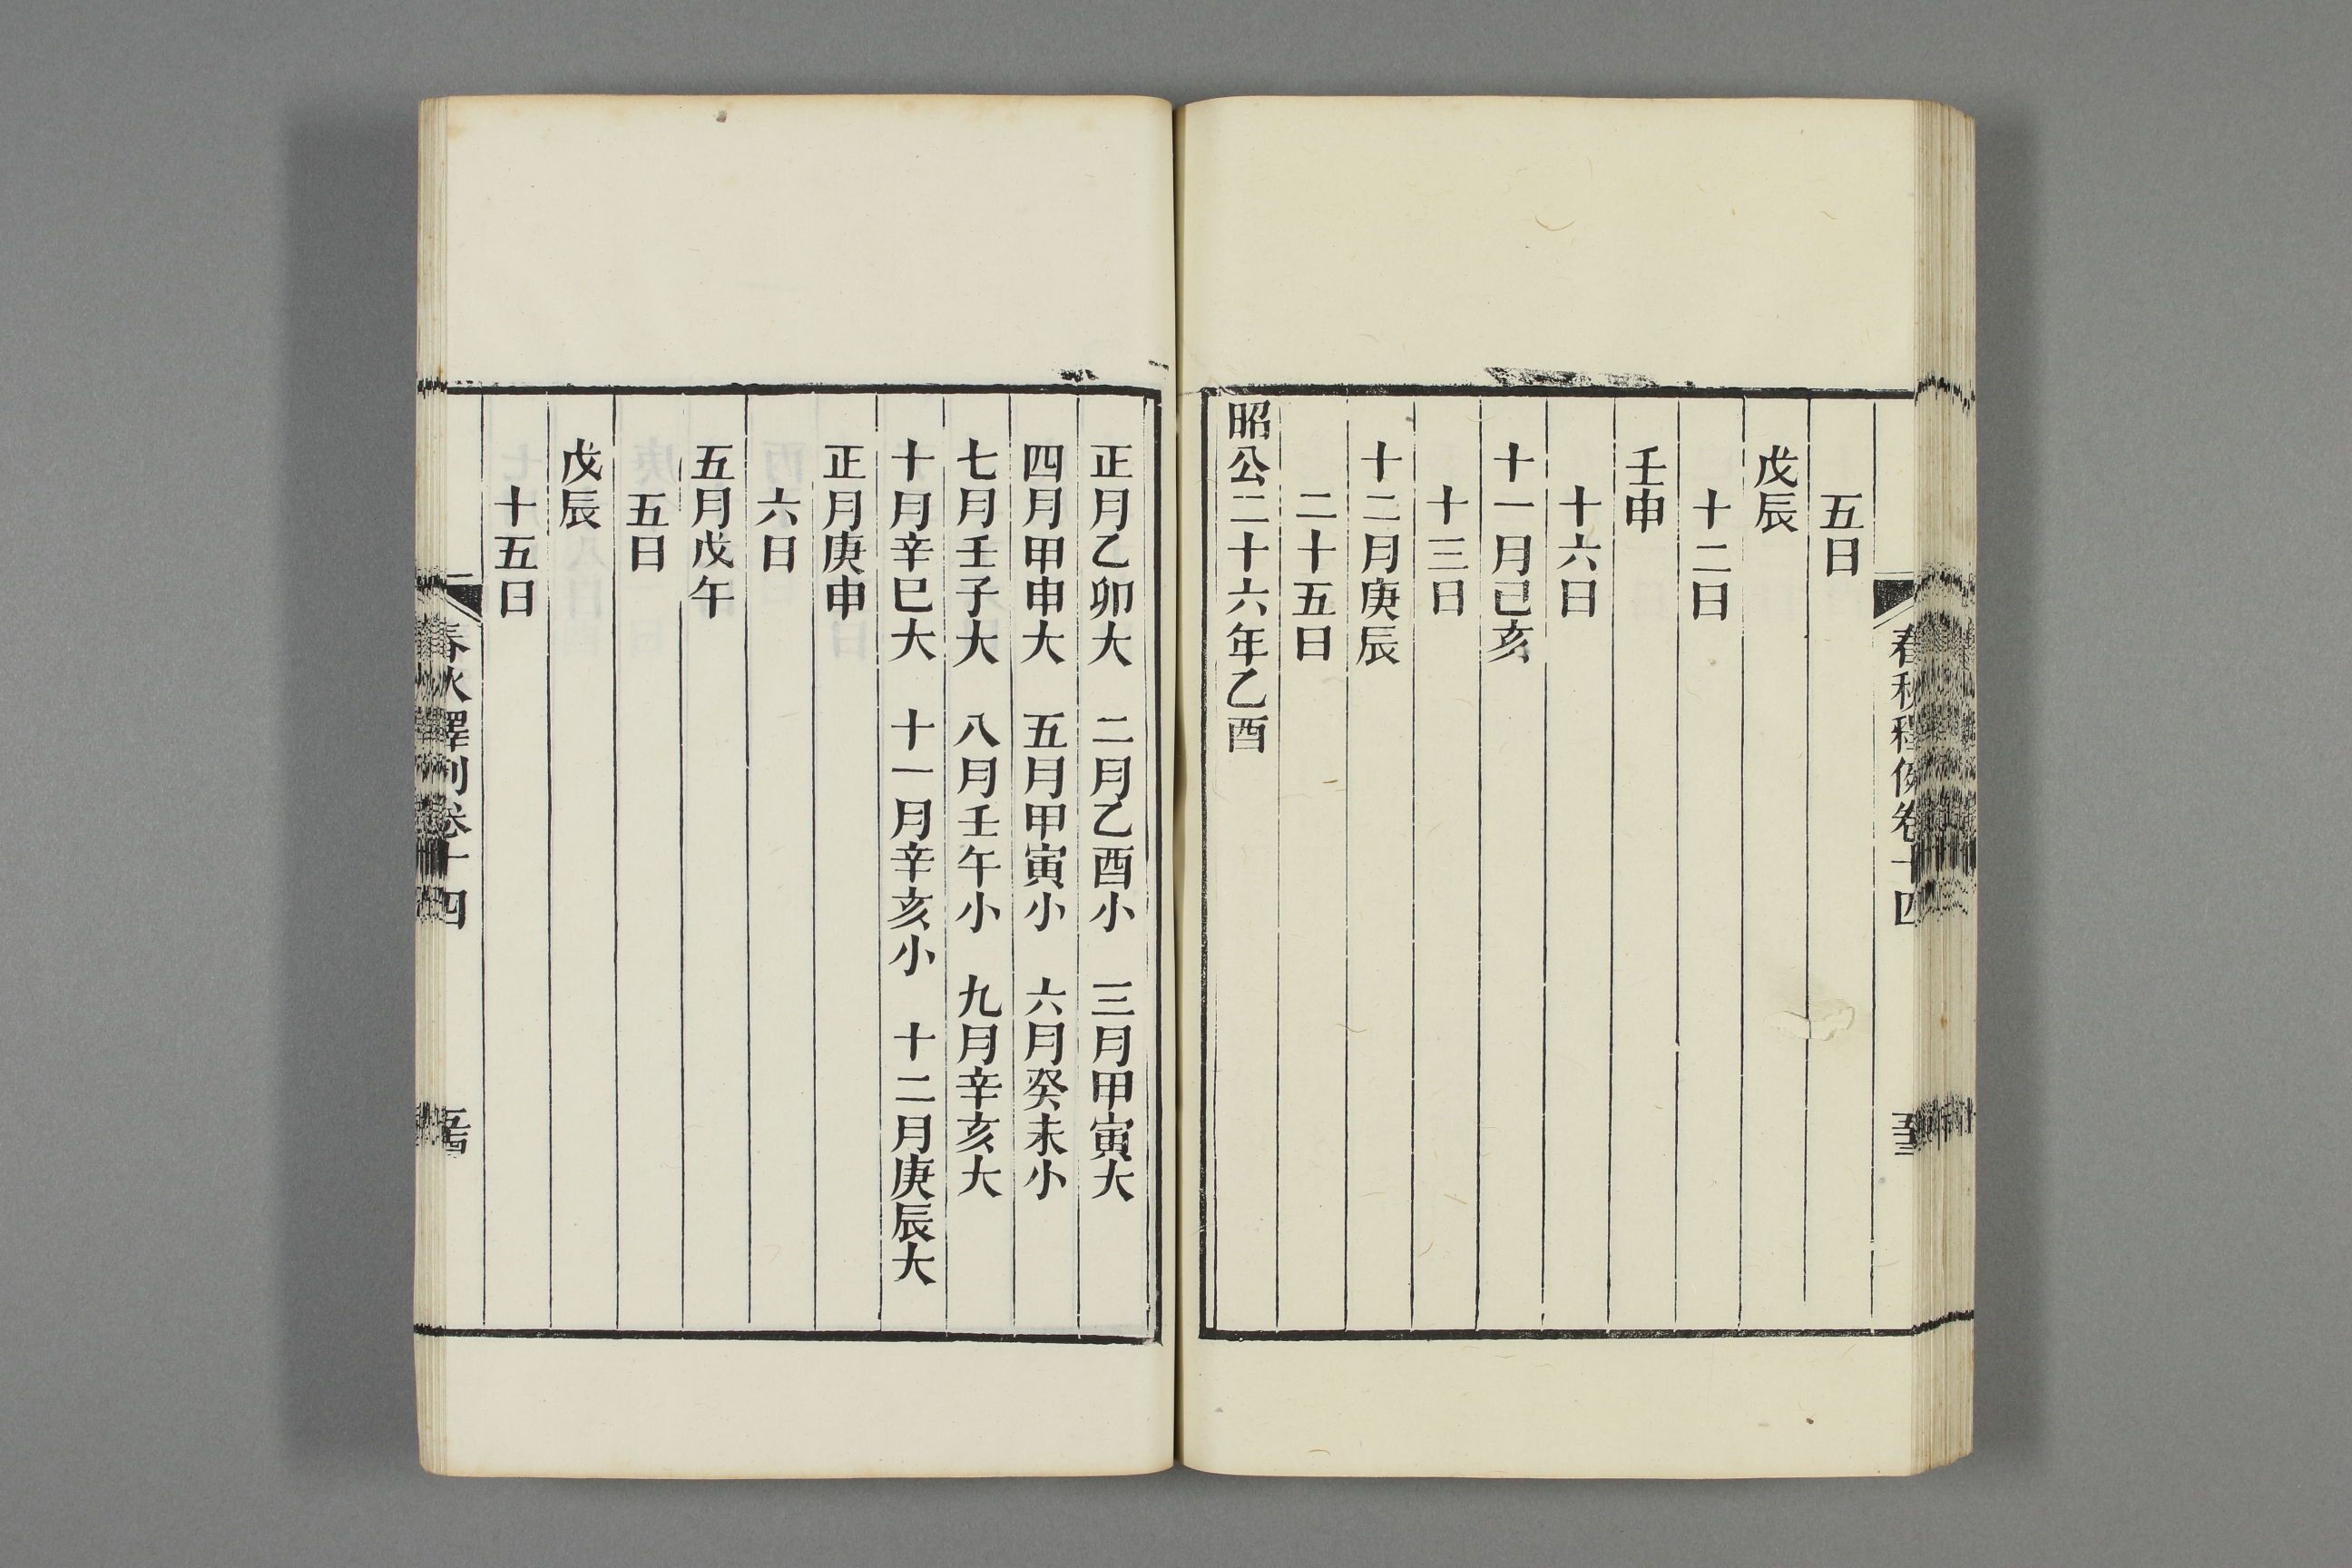 五日
戊辰
十二日
壬申
十六日
十一月己亥
十三日
十二月庚辰
二十五日
昭公二十六年乙酉
正月乙卯大　二月乙酉小　三月甲寅大
四月甲申大　五月甲寅小　六月癸未小
七月壬子大　八月壬午小　九月辛亥大
十月辛巳大　十一月辛亥小　十二月庚辰大
正月庚申
六日
五月戊午
五日
戊辰
十五日
春秋釋例卷十四